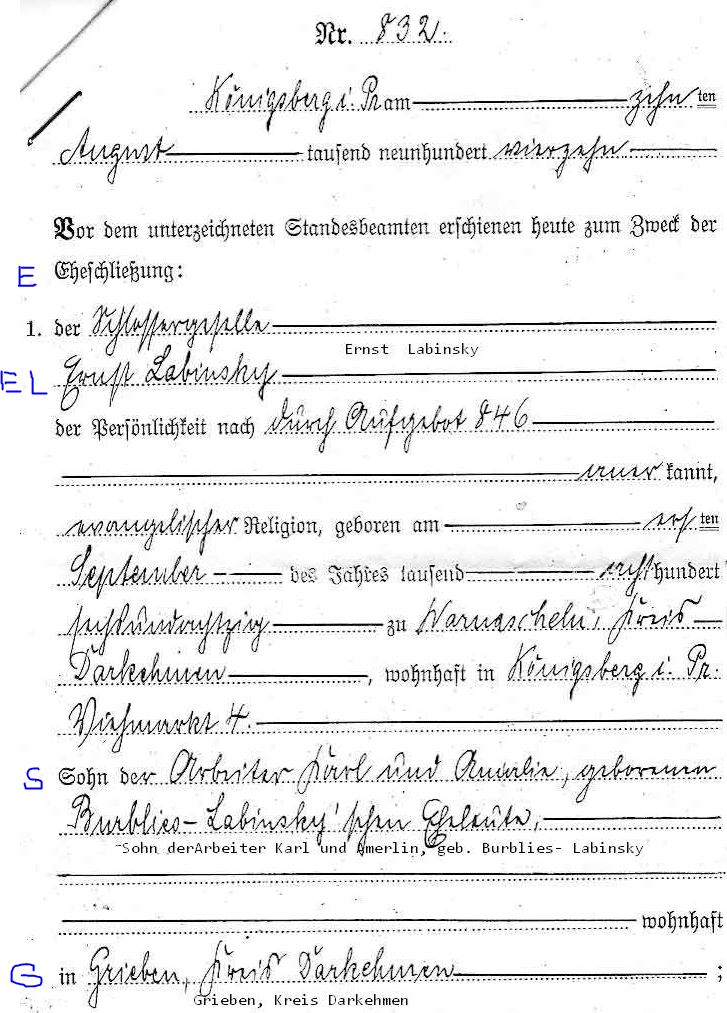 Nr. 832.
Königsberg i. Pr am zehn ten
August tausend neunhundert vierzehn
Vor dem unterzeichneten Standesbeamten erschienen heute zum Zweck der
E Eheschließung:
1. der Schlossergeselle
Ernst Labinsky
EL Ernst Labinsky
der Persönlichkeit nach durch Aufgebot 846
aner kannt,
evangelischer Religion, geboren am ers ten
September des Jahres tausend acht hundert
sechsundachtzig zu Warnascheln, Kreis
Darkehmen, wohnhaft in Königsberg i. Pr.
Viehmarkt 4.
S Sohn der Arbeiter Karl und Amalie, geborenen
Burblies-Labinsky'schen Eheleute,
Sohn derArbeiter Karl und Amerlin, geb. Burblies- Labinsky
wohnhaft
G in Grieben, Kreis Darkehmen ;
Grieben, Kreis Darkehmen